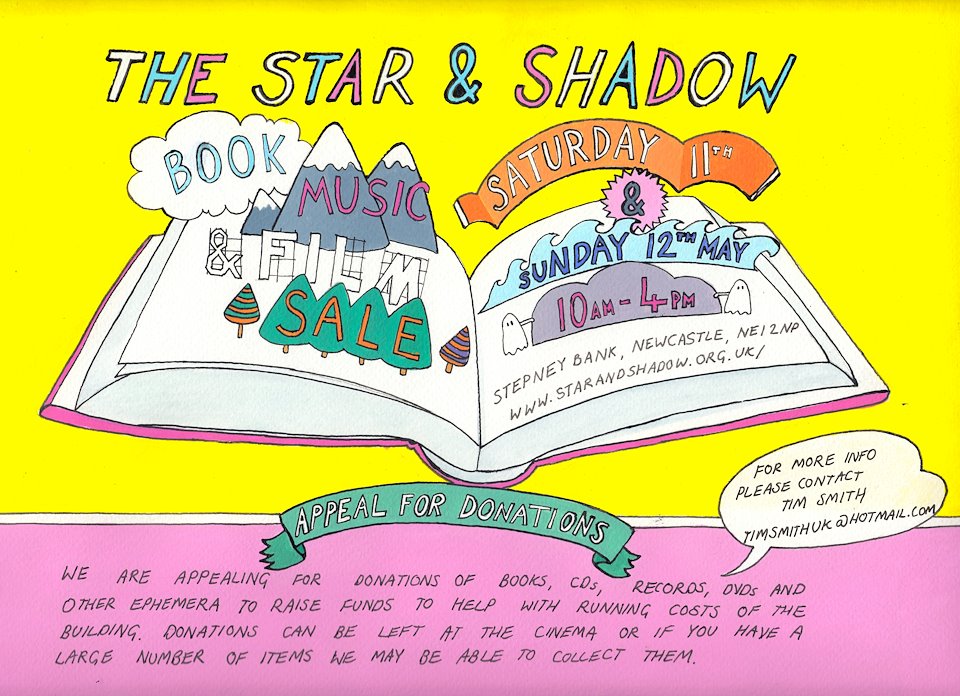 THE STAR & SHADOW
BOOK
MUSIC
& FILM
SALE
SATURDAY 11TH
&
SUNDAY 12TH MAY
10AM - 4PM
STEPNEY BANK, NEWCASTLE, NE1 2NP
WWW.STARANDSHADOW.ORG.UK/
FOR MORE INFO
PLEASE CONTACT
TIM SMITH
TIMSMITHUK@HOTMAIL.COM
APPEAL FOR DONATIONS
WE ARE APPEALING FOR DONATIONS OF BOOKS, CDs, RECORDS, DVDs AND
OTHER EPHEMERA TO RAISE FUNDS TO HELP WITH RUNNING COSTS OF THE
BUILDING. DONATIONS CAN BE LEFT AT THE CINEMA OR IF YOU HAVE A
LARGE NUMBER OF ITEMS WE MAY BE ABLE TO COLLECT THEM.